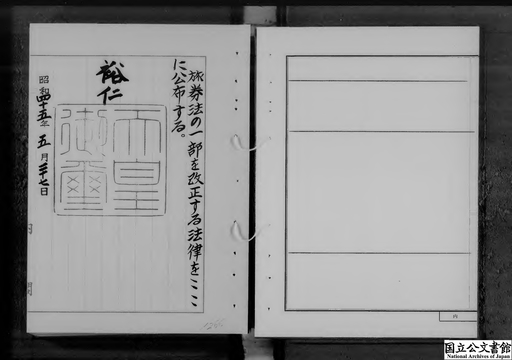 旅券法の一部を改正する法律をここ
に公布する。
裕仁
天皇
御璽
昭和四十五年五月二十七日
内
国立公文書館
National Archives of Japan